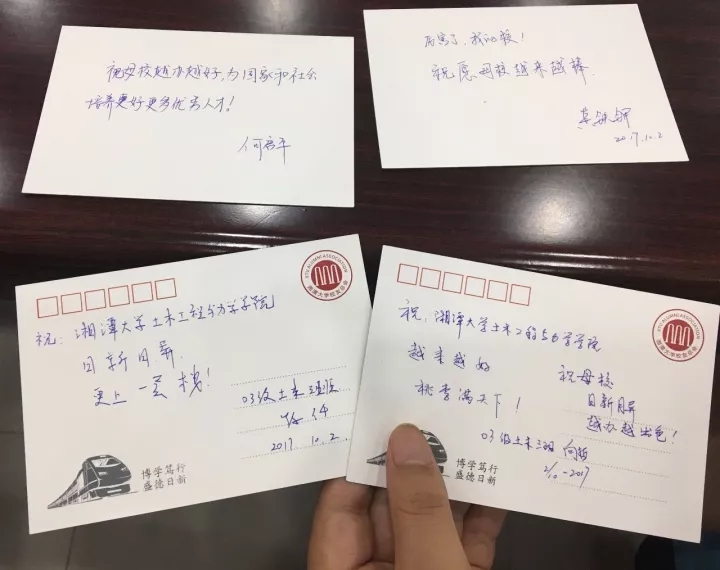 祝母校越办越好,为国家和社会
培养更好更多优秀人才!
何启平
厉害了,我的校!
祝愿母校越来越棒.
2017.10.2
XTU ALUMNI ASSOCIATION
湘潭大学校友会
祝:湘潭大学土木工程与力学学院
日新月异.
更上一层楼!
03级土木三班
2017.10.2
博学笃行
盛德日新
XTU ALUMNI ASSOCIATION
湘潭大学校友会
祝:湘潭大学土木工程与力学学院
越来越好
桃李满天下!
祝母校
日新月异
越办越出色!
03级土木三班
2/10-2017
博学笃行
盛德日新